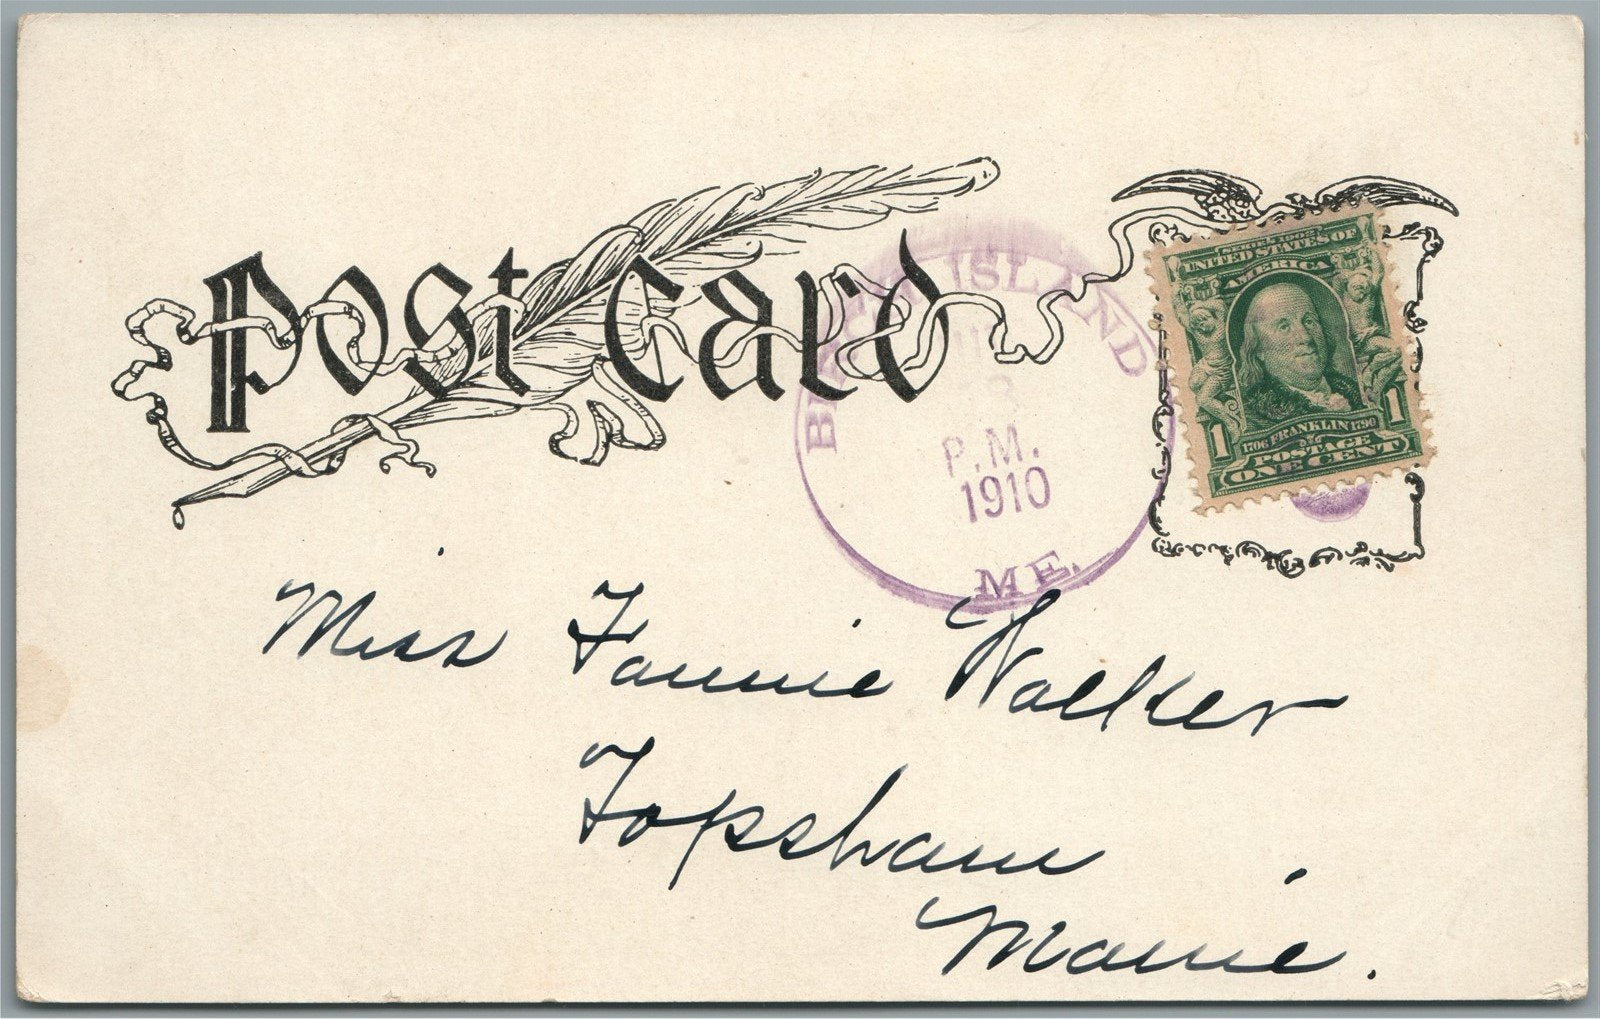 Post Card
ISLAND
P.M.
1910
ME.
SERIES 1902
UNITED STATES OF
AMERICA
1 1
1706 FRANKLIN 1790
POSTAGE
ONE CENT
Miss Fannie Walker
Topsham
Maine.